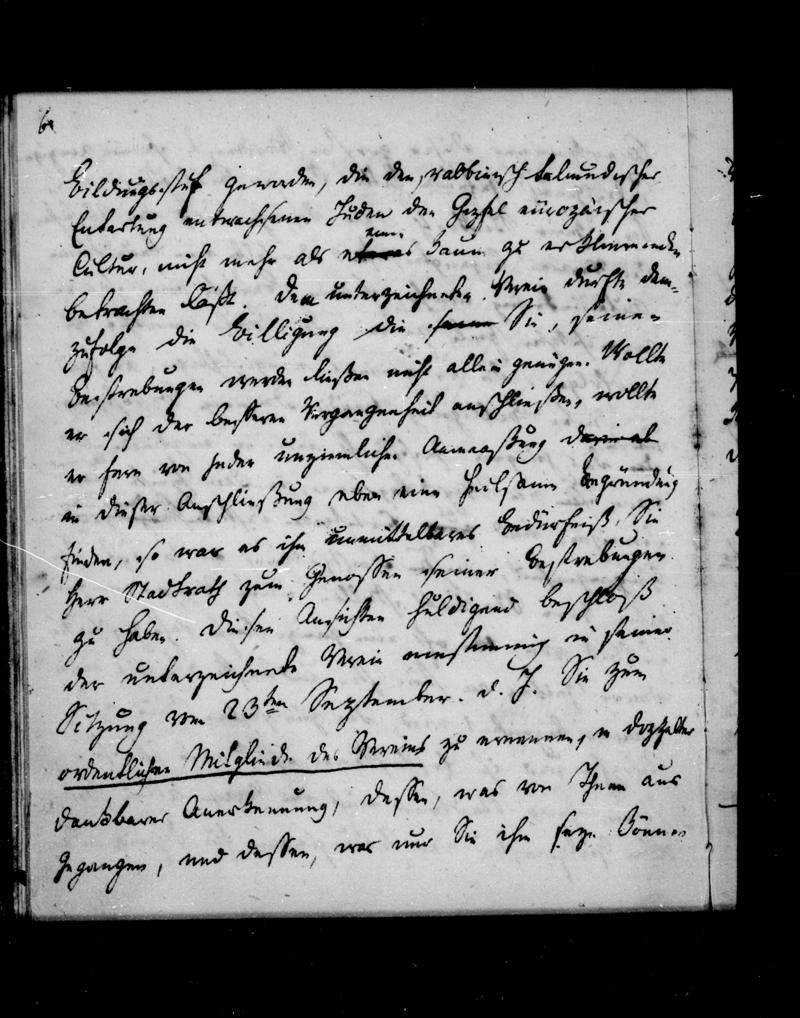 6.
Bildungsstufe geworden, die den rabbinisch-talmudischer
Entartung entwachsenen Juden den Gipfel europäischer
Cultur, nicht mehr als kaum zu erklimmenden
betrachten läßt. Dem unterzeichneten Verein durfte dem-
zufolge die Billigung die Sie, seinen
Bestrebungen werden ließen nicht allein genügen. Wollte
er sich der besseren Vergangenheit anschließen, wollte
er fern von jeder unziemlichen Anmaaßung
in dieser Anschließung eben eine heilsame Begründung
finden, so war es ihm unmittelbares Bedürfniß, Sie
Herr Stadtrath zum Genossen seiner Bestrebungen
zu haben. Diesen Ansichten huldigend beschloß
der unterzeichnete Verein einstimmig in seiner
Sitzung vom 23ten September. d. J. Sie zum
ordentlichen Mitgliede des Vereins zu ernennen, in doppelter
dankbarer Anerkennung, dessen, was von Ihnen aus
gegangen, und dessen, was nur Sie ihm seyn können